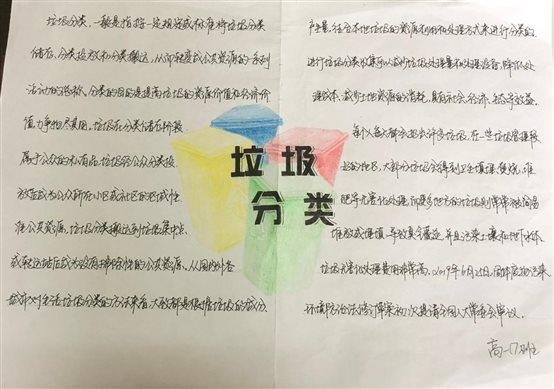 垃圾分类，一般是指按一定规定或标准将垃圾分类
储存、分类投放和分类搬运，从而转变成公共资源的一系列
活动的总称。分类的目的是提高垃圾的资源价值和经济价
值，力争物尽其用。垃圾在分类储存阶段
属于公众的私有品，垃圾经公众分类投
放后成为公众所在小区或社区的区域性
准公共资源，垃圾分类搬运到垃圾集中点
或转运站后成为没有排除性的公共资源。从国内外各
城市对生活垃圾分类的方法来看，大致都是根据垃圾的成分、
产生量，结合本地垃圾的资源利用和处理方式来进行分类的。
进行垃圾分类收集可以减少垃圾处理量和处理设备，降低处
理成本，减少土地资源的消耗，具有社会、经济、生态等效益。
每个人每天都会扔出许多垃圾，在一些垃圾管理较
好的地区，大部分垃圾会得到卫生填埋、焚烧、堆
肥等无害化处理，而更多地方的垃圾则常常被简易
堆放或填埋，导致臭气蔓延，并且污染土壤和地下水体。
垃圾无害化处理费用非常高。2019年6月25日，固体废物污染
环境防治法修订草案初次提请全国人大常委会审议。
垃圾
分类
高一17班